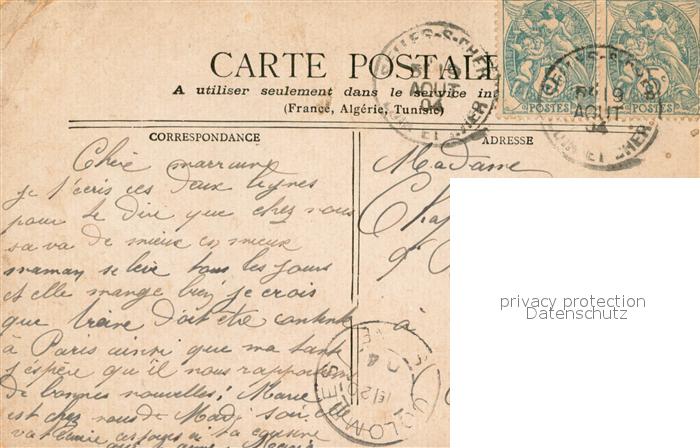 CARTE POSTALE
A utiliser seulement dans le service int
(France, Algérie, Tunisie)
CORRESPONDANCE
ADRESSE
POSTES
POSTES
CELLES-S-CHER
19
AOUT
04
LOIR ET CHER
CELLES-S-CHER
19
AOUT
04
LOIR ET CHER
Chère marraine
je t'écris ces deux lignes
pour te dire que chez nous
sa va de mieux en mieux
maman se lève tous les jours
et elle mange bien je crois
que Irène doit être contente
à Paris ainsi que ma tante
j'espère qu'il nous rapporteron
de bonnes nouvelles. Marie
est chez nous de Mardi soir elle
va
Madame
à
COLOMBES
privacy protection
Datenschutz